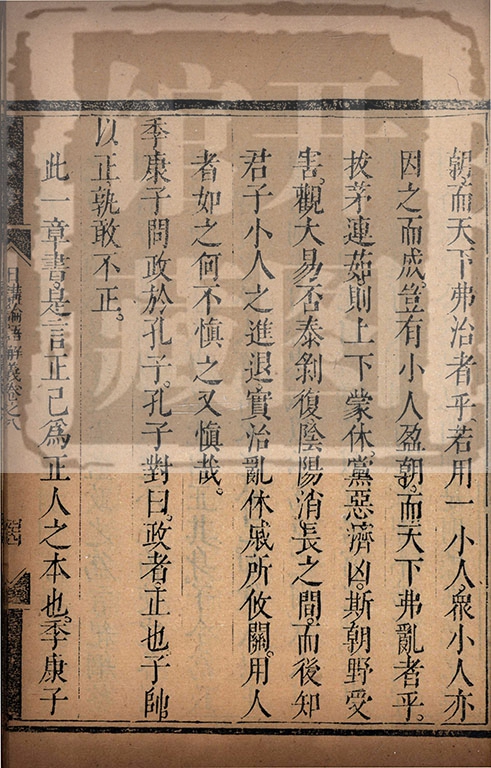 朝。而天下弗治者乎。若用一小人。衆小人亦
因之而成。豈有小人盈朝。而天下弗亂者乎。
拔茅連茹。則上下蒙休。黨惡濟凶。斯朝野受
害。觀大易否泰剝復陰陽消長之間。而後知
君子小人之進退。實治亂休戚所攸關。用人
者如之何不慎之又慎哉。
季康子問政於孔子。孔子對曰。政者。正也。子帥
以正。孰敢不正。
此一章書。是言正己爲正人之本也。季康子
日講論語解義卷之八